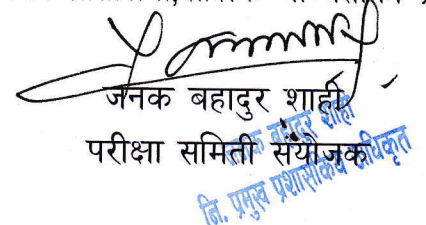 जनक बहादुर शाही
परीक्षा समिती संयोजक
जनक बहादुर शाही
नि. प्रमुख प्रशासकिय अधिकृत